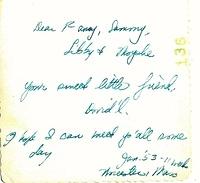 Dear Randy, Sammy,
Libby &
Your sweet little friend,
David L.
I hope I can meet ya'll some
day
Jan. '53 - 11 wks
Worcester, Mass
136